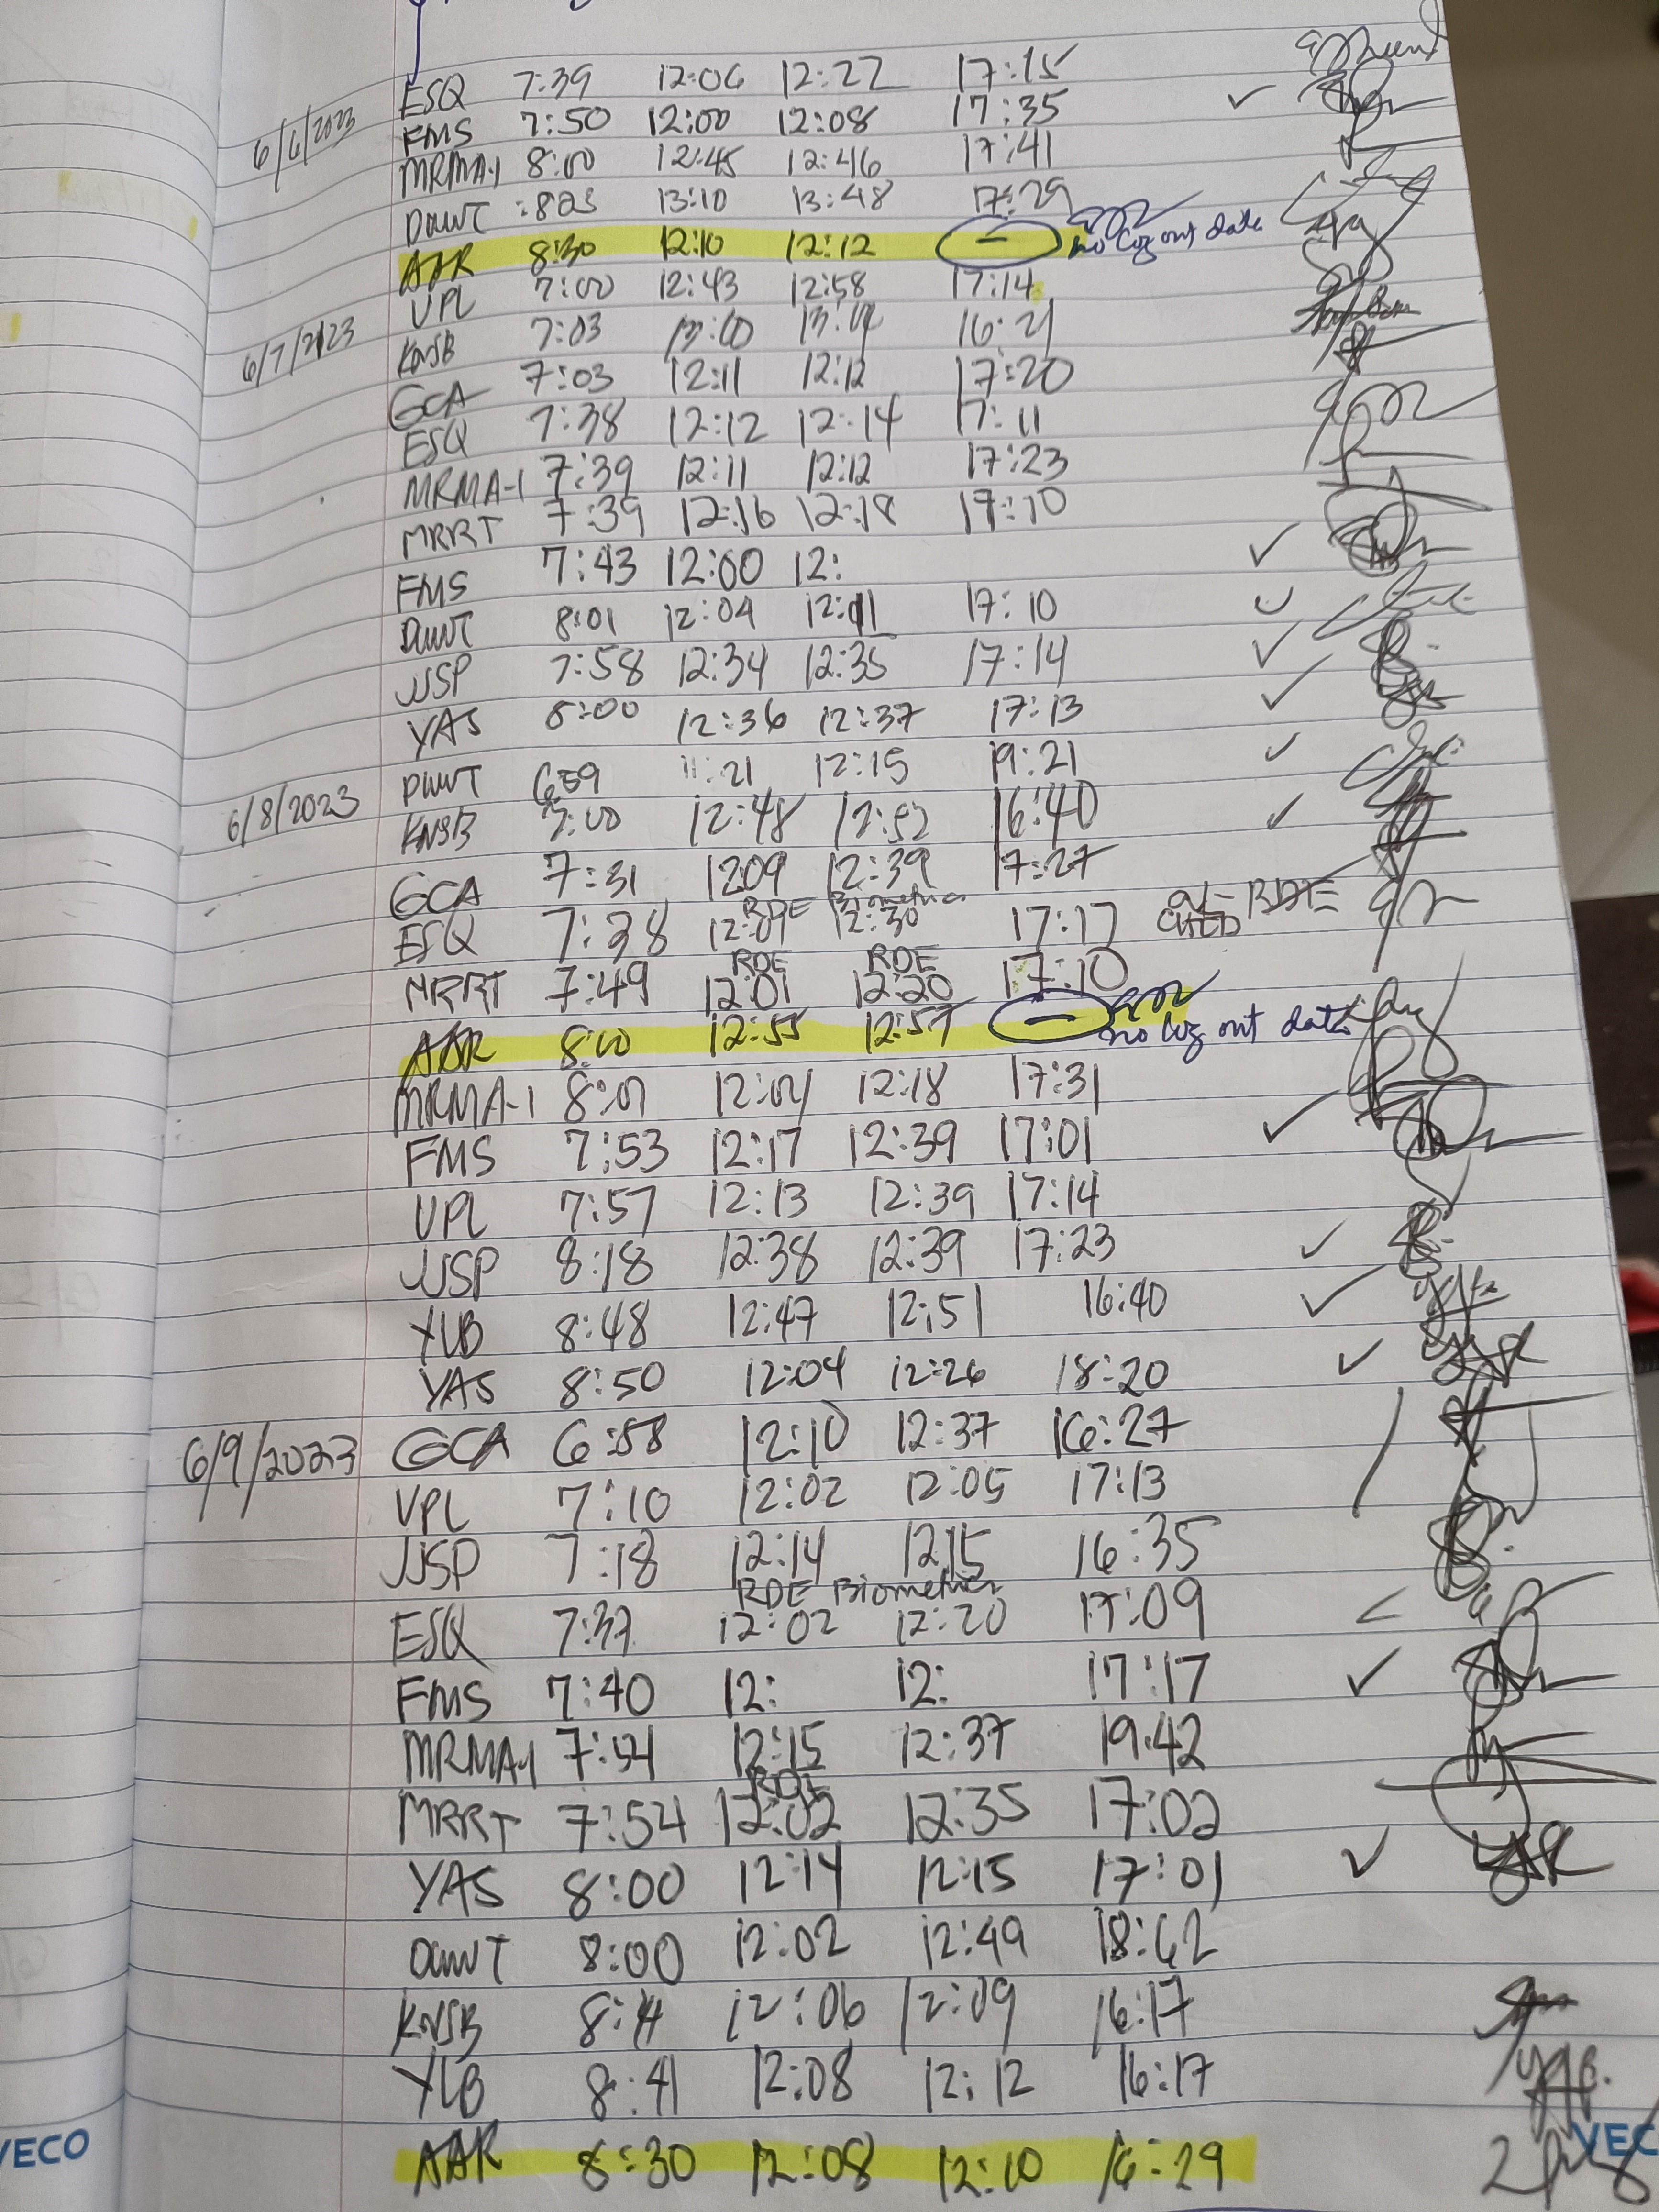 ESQ 7:39 12:06 12:22 17:15
6/6/2023 FMS 7:50 12:00 12:08 17:35
MRMA-1 8:00 12:45 12:46 17:41
DWWT :823 13:10 13:48 17:29
AAR 8:30 12:10 12:12 — no log out data
VPL 7:00 12:43 12:58 17:14
6/7/2023 KNSB 7:03 13:00 16:21
GCA 7:03 12:11 12:12 17:20
ESQ 7:38 12:12 12:14 17:11
MRMA-1 7:39 12:11 12:12 17:23
MRRT 7:39 12:16 12:18 17:10
FMS 7:43 12:00 12:
DWWT 8:01 12:04 12:11 17:10
JJSP 7:58 12:34 12:35 17:14
YAS 8:00 12:36 12:37 17:13
DWWT 659 11:21 12:15 19:21
6/8/2023 KNSB 7:00 12:48 12:52 16:40
GCA 7:31 1209 12:39 17:27
RDE Biometrics
ESQ 7:38 12:09 12:30 17:17 at RDE
RDE RDE
MRRT 7:49 12:01 12:20 17:10
AAR 8:00 12:55 12:57 — no log out data
MRMA-1 8:01 12:01 12:18 17:31
FMS 7:53 12:17 12:39 17:01
VPL 7:57 12:13 12:39 17:14
JJSP 8:18 12:38 12:39 17:23
YLB 8:48 12:47 12:51 16:40
YAS 8:50 12:04 12:26 18:20
6/9/2023 GCA 6:58 12:10 12:37 16:27
VPL 7:10 12:02 12:05 17:13
JJSP 7:18 12:14 1215 16:35
RDE Biometrics
ESQ 7:37 12:02 12:20 17:09
FMS 7:40 12: 12: 17:17
MRMA-1 7:54 12:15 12:37 19:42
RDE
MRRT 7:54 12:02 12:35 17:02
YAS 8:00 12:14 12:15 17:01
DWWT 8:00 12:02 12:49 18:62
KNSB 8:11 12:06 12:09 16:17
YLB 8:41 12:08 12:12 16:17
AAR 8:30 12:08 12:10 16:29
VECO VEC